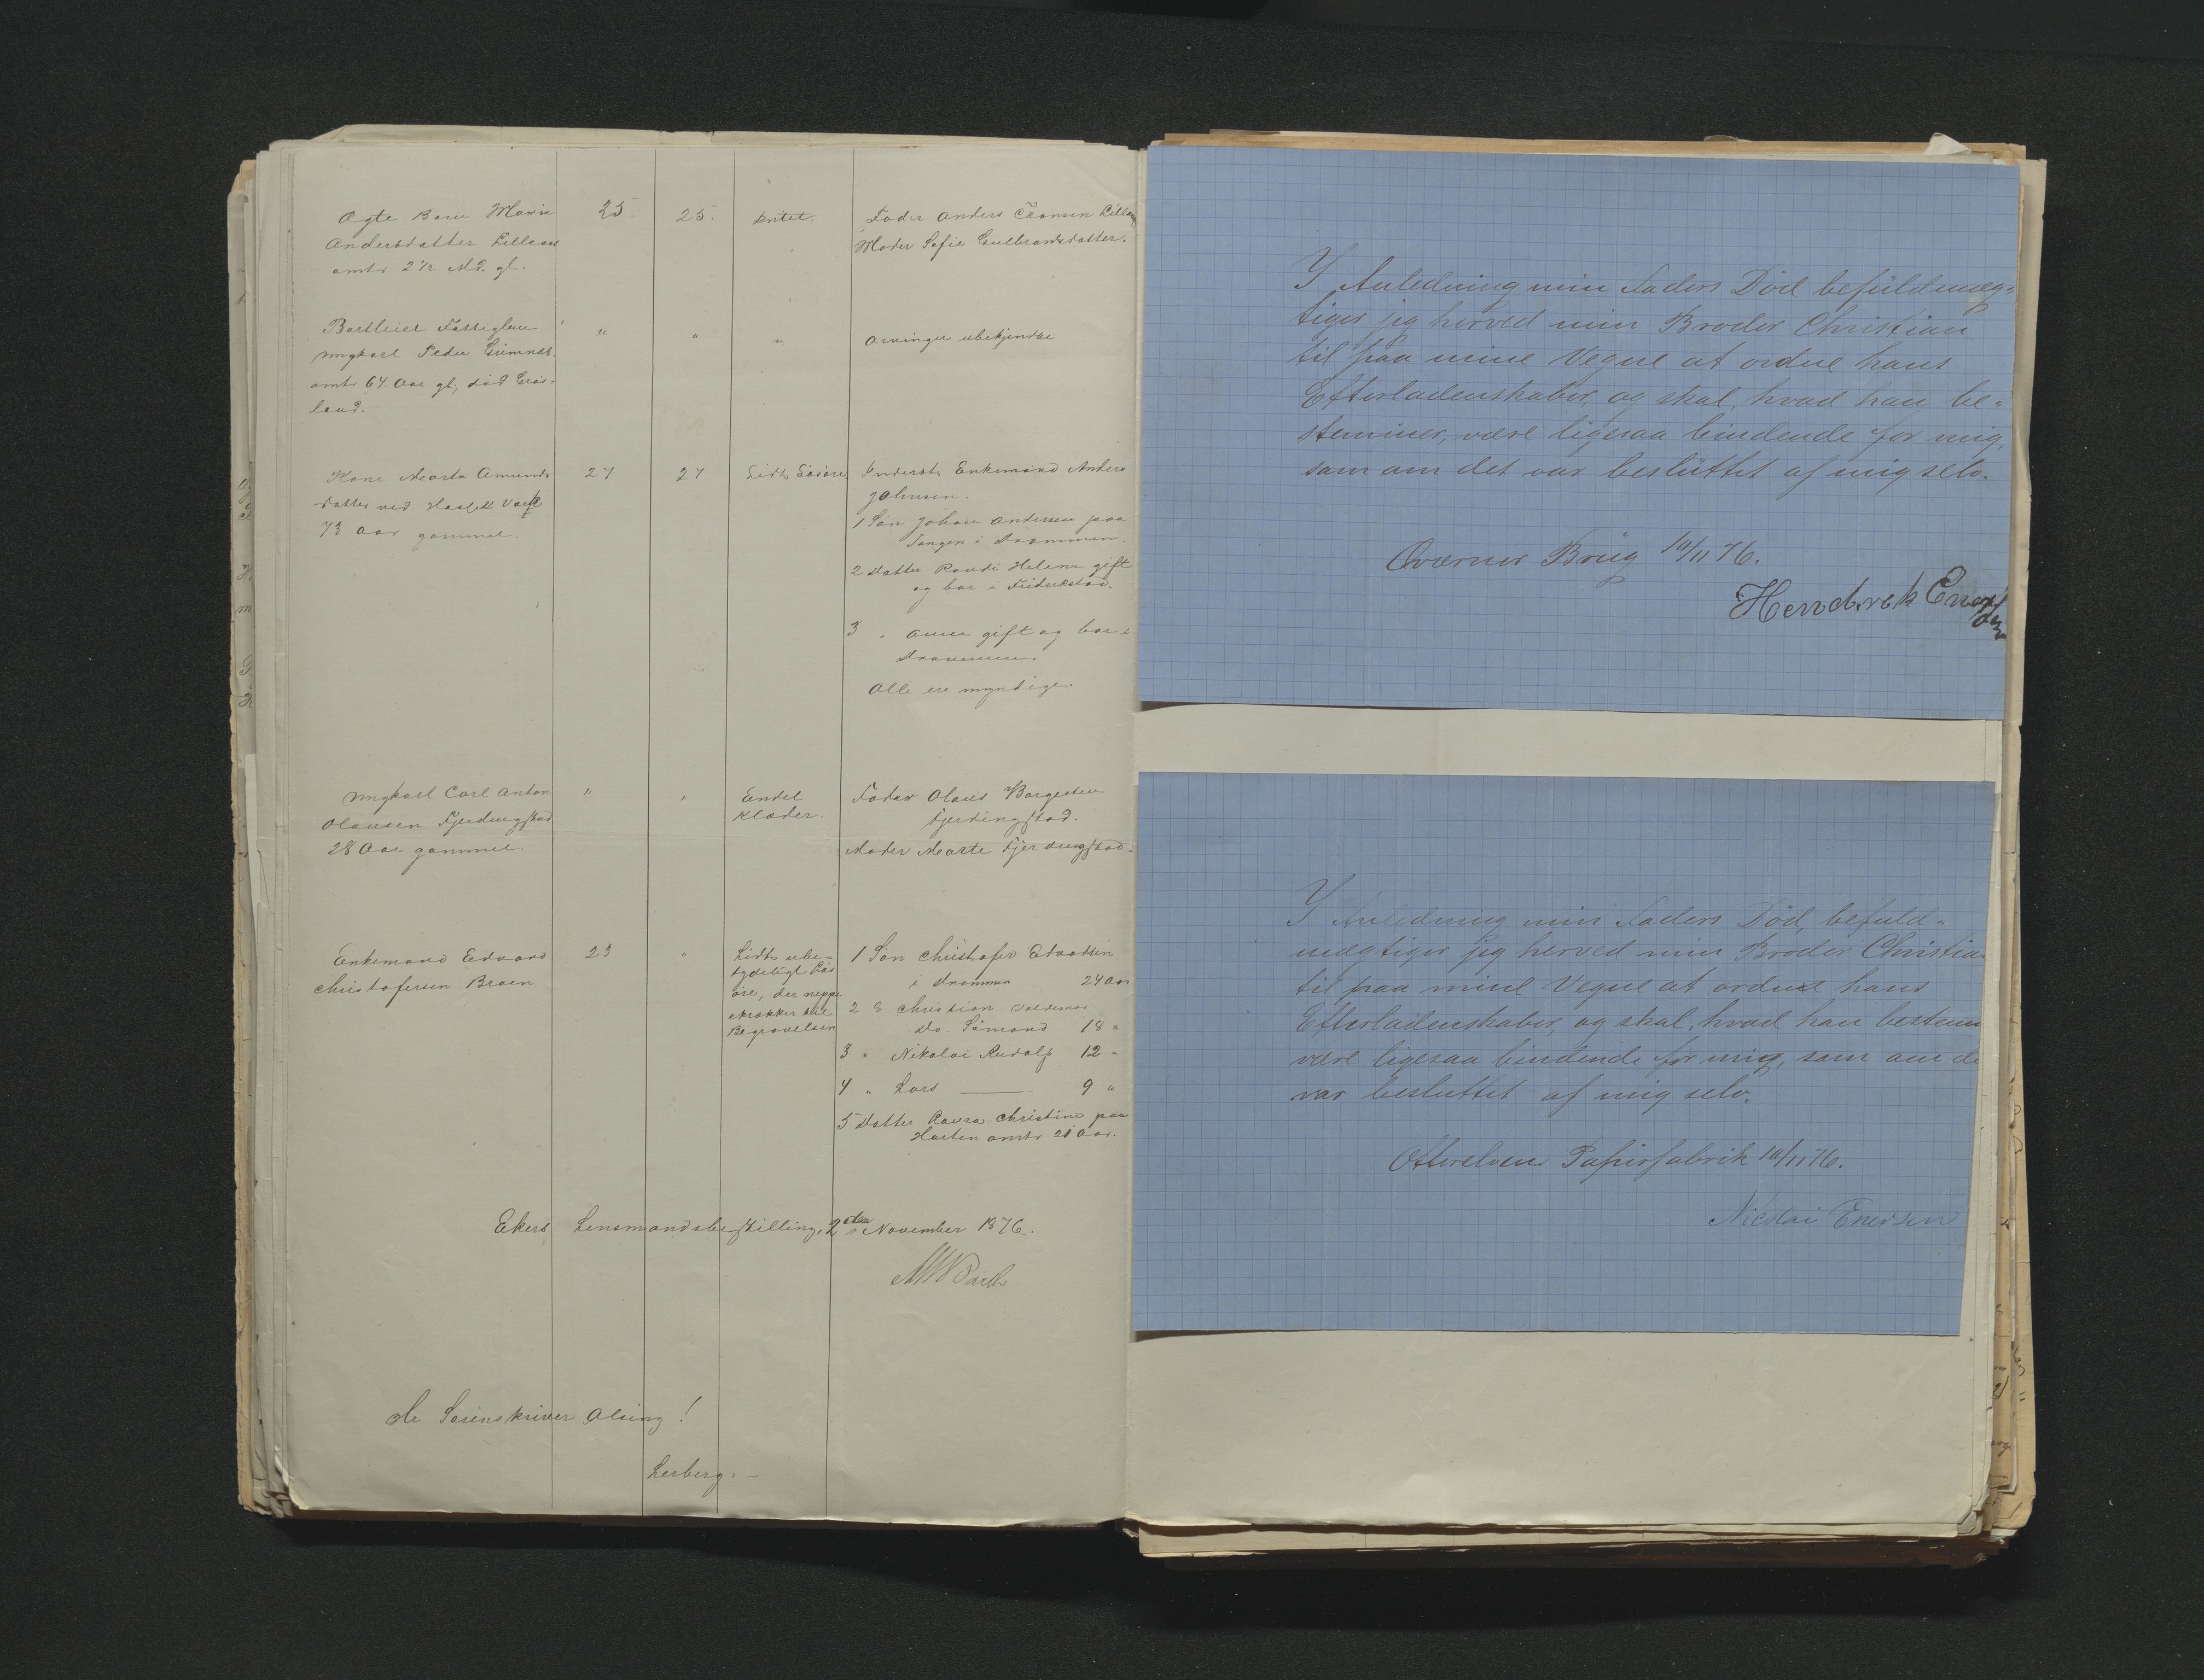 Ægte Barn Maria 25. 25. Intet. Fader Anders Transen Lilleaas
Andersdatter Lilleaas Moder Sofie Gulbrandsdatter.
omtr 2 1/2 Md. gl.
Bortleiet Fattiglem " " " Arvinger ubekjendte
Ungkarl Peder
omtr 64 Aar gl, død
land.
Kone Marta Amunds- 27 27 Lidt Løsøre Inderst, Enkemand Anders
datter ved Hassel Værk Johnsen.
73 Aar gammel. 1 Søn Johan Andersen paa
Tangen i Drammen.
2 Datter Randi Helene gift
og bor i Fredrikstad.
3 " Anne gift og bor i
Drammen.
Alle ere myndige.
Ungkarl Carl Anton " " Endel Fader Olaus Borgersen
Olausen Fjerdingstad Klæder. Fjerdingstad.
28 Aar gammel. Moder Marte Fjerdingstad.
Enkemand Edvard 23 " Lidt ube- 1 Søn Christofer Edvardsen
Christofersen Braen tydeligt Løs i Drammen 24 Aar
øre, der neppe 2 " Christian Valdemar
strækker til do. Sømand 18 "
Begravelsen 3 " Nikolai Rudolf 12 "
4 " Lars — 9 "
5 Datter Laura Christine paa
Horten omtr 21 Aar.
Ekers Lensmandsbestilling, 2den November 1876.
Hr Sorenskriver Alsing!
Lerberg: —
I Anledning min Faders Død befuldmæg-
tiger jeg herved min Broder Christian
til paa mine Vegne at ordne hans
Efterladenskaber, og skal, hvad han be-
stemmer, være ligesaa bindende for mig,
som om det var besluttet af mig selv.
Qværner Brug 10/11 76.
Hendrek Enersen
I Anledning min Faders Død, befuld-
mægtiger jeg herved min Broder Christia
til paa mine Vegne at ordne hans
Efterladenskaber, og skal, hvad han bestem
være ligesaa bindende for mig, som om de
var besluttet af mig selv.
Otterelvens Papirfabrik 10/11 76.
Nicolai Enersen